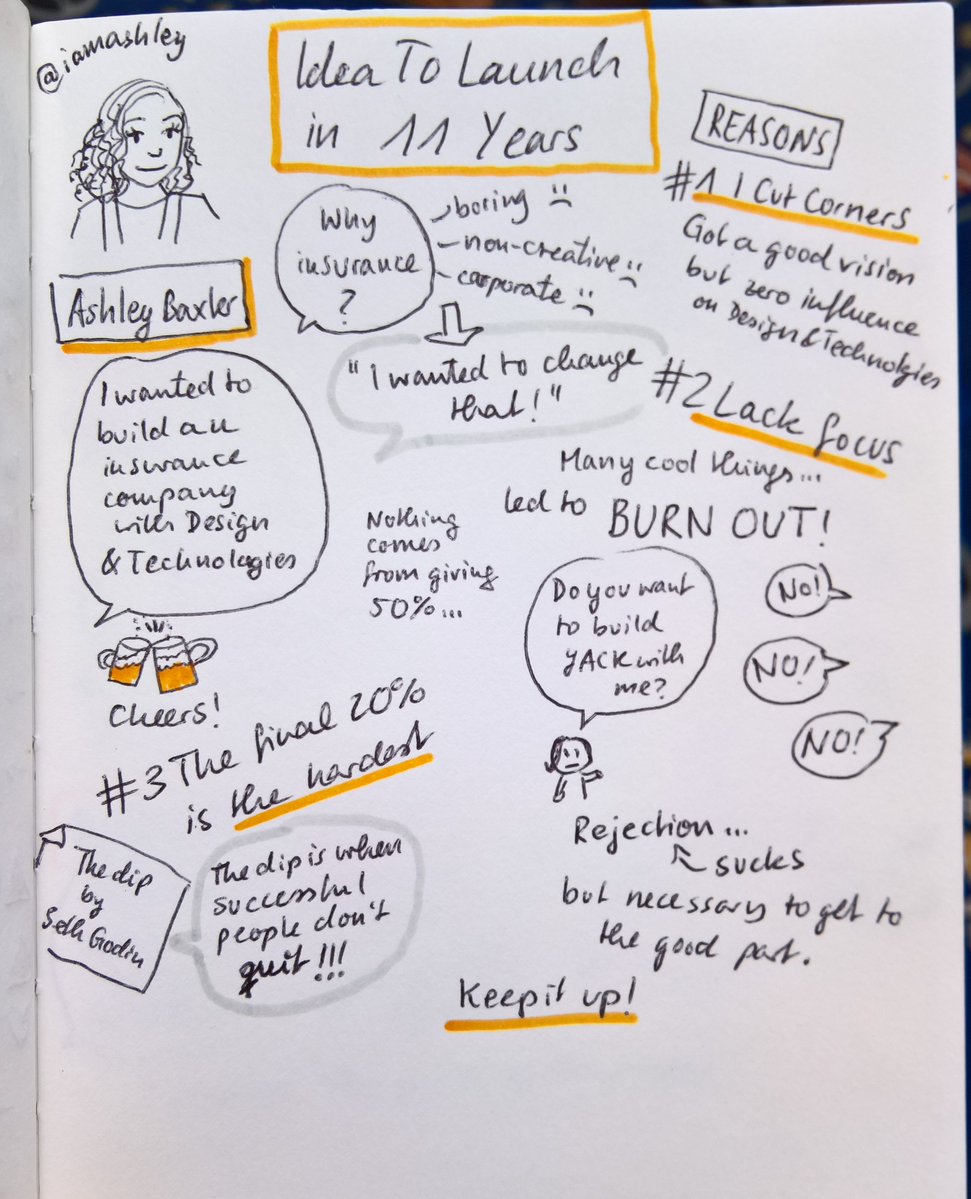 @iamashley
Idea To Launch
in 11 Years
Ashley Baxter
I wanted to
build an
insurance
company
with Design
& Technologies
Cheers!
Why
insurance
?
boring
non-creative
corporate
"I wanted to change
that!"
REASONS
#1 I Cut Corners
Got a good vision
but zero influence
on Design & Technologies
#2 Lack focus
Many cool things...
led to BURN OUT!
Nothing
comes
from giving
50%...
Do you want
to build
YACK with
me?
NO!
NO!
NO!
Rejection...
sucks
but necessary to get to
the good part.
#3 The final 20%
is the hardest
The dip
by
Seth Godin
The dip is when
successful
people don't
quit!!!
Keep it up!